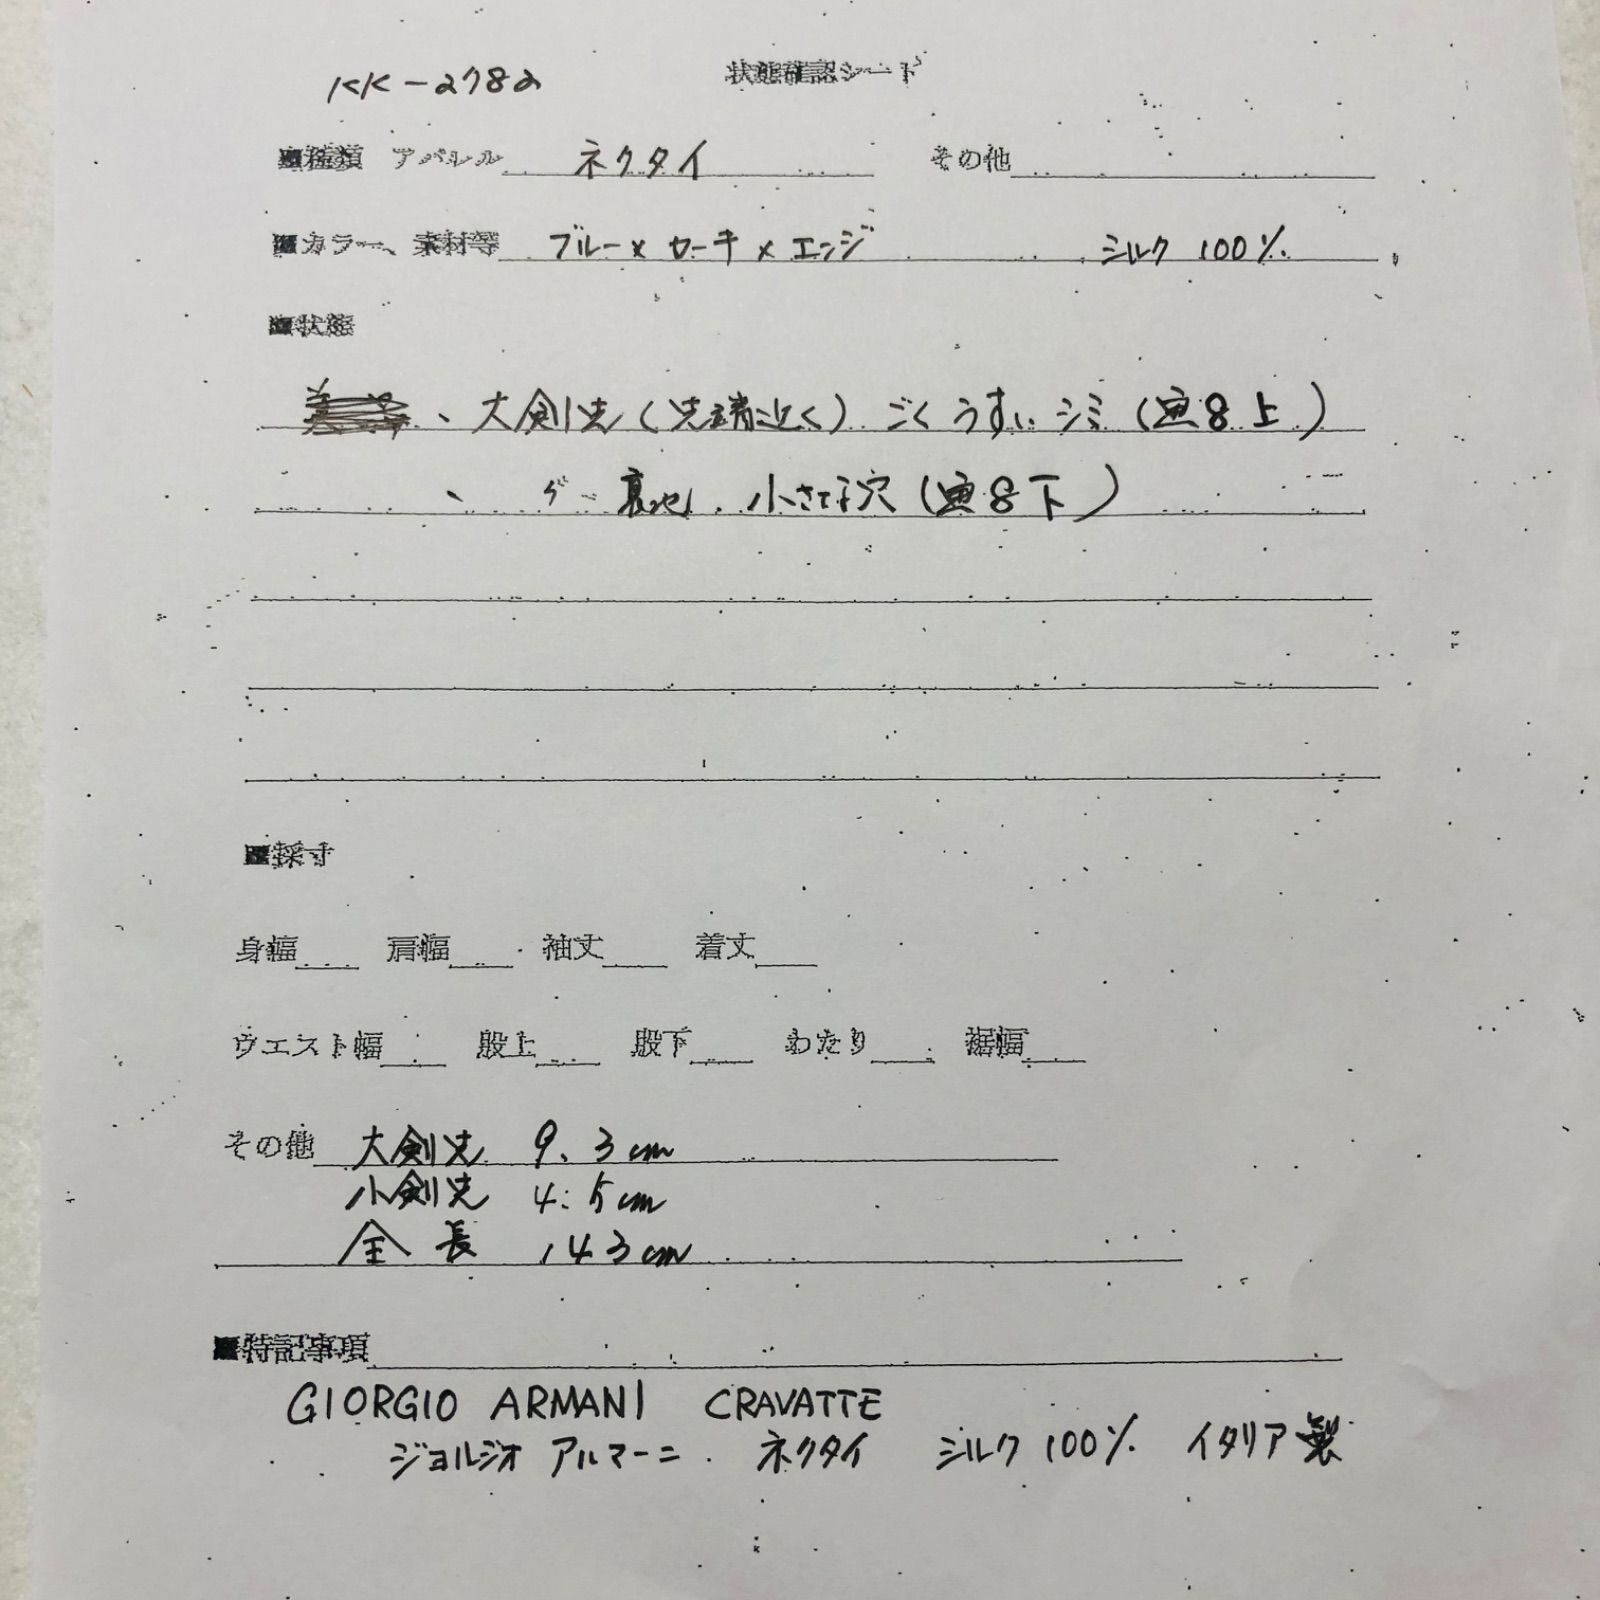 KK-2782 状態確認シート
■種類 アパレル ネクタイ その他
■カラー、素材等 ブルー×カーキ×エンジ シルク 100%
■状態
、大剣先(先端近く)ごくうすいシミ(画8上)
、 〃 裏地、小さな穴(画8下)
■採寸
身幅 肩幅 袖丈 着丈
ウエスト幅 股上 股下 わたり 裾幅
その他 大剣先 9.3cm
小剣先 4.5cm
全長 143cm
■特記事項
GIORGIO ARMANI CRAVATTE
ジョルジオ アルマーニ. ネクタイ シルク 100% イタリア製